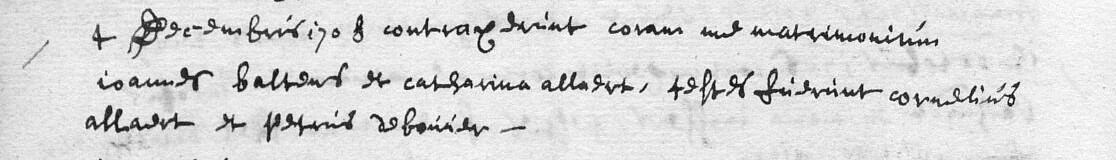 4 Decembris 1708 contraxerunt coram me matrimonium
ioannes baltens et catharina allaert, testes fuerunt cornelius
allaert et petrus debouier —